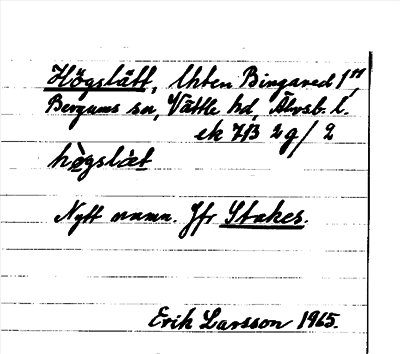 Högslätt, lht en Bingared 1¹⁷,
Bergums sn, Vättle hd, Älvsb. l.
ek 7B 2g/2
hø̀gslæ̀t
Nytt namn. Jfr Stakes.
Erik Larsson 1965.